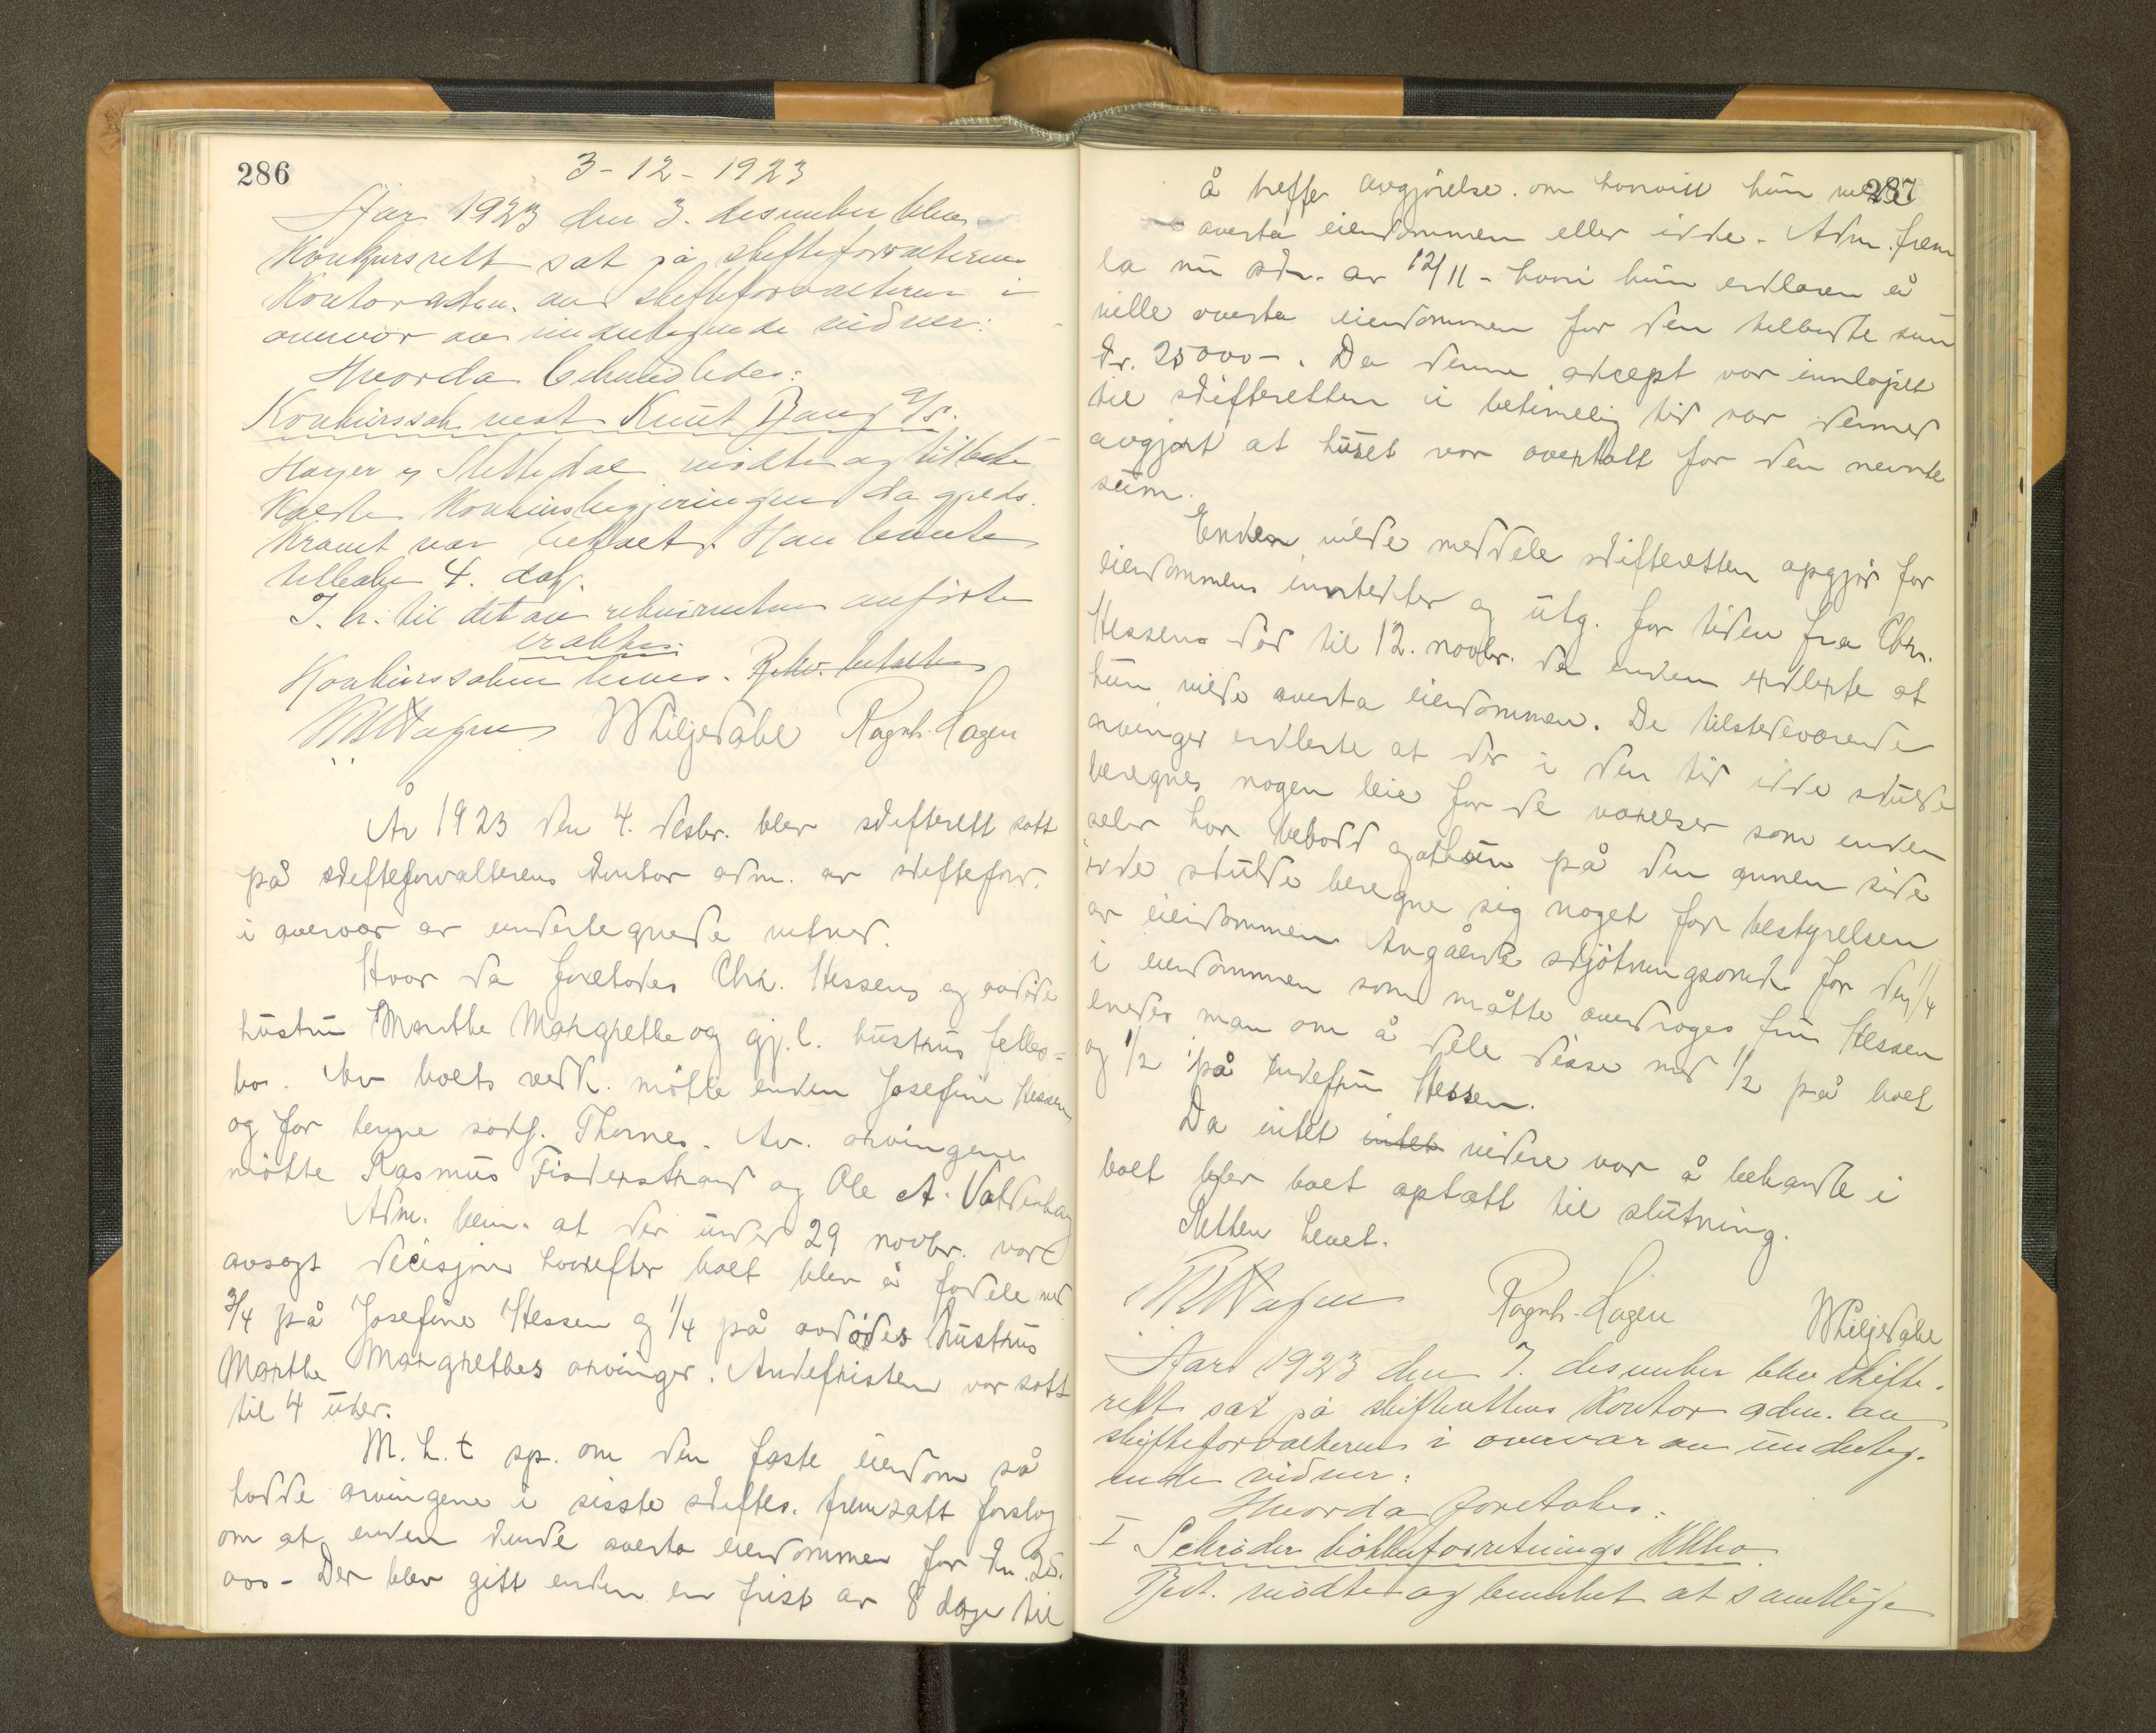 286
3-12-1923
Aar 1923 den 3. desember blev
Konkursrett sat på skifteforvalterens
Kontor adm. av skifteforvalteren i
overvær av undertegnede vidner:
Hvorda behandledes:
Konkurssak mot Knut Bang A/S.
Høyer og Slettedal mødte og tilbake
kaldte Konkursbegjæringen da gjelds
kravet var betalt. Han
tilbake 4. dok.
T. h. til det av rekvirenten anførte
erakter
Konkurssaken heves. Rekv. betaltes
Wagen WLiljedahl Ragnh. Hagen
År 1923 den 4. desbr. blev skifterett satt
på skifteforvalterens kontor adm. av skifteforv.
i overvær av undertegnede vitner.
Hvor da foretokes Chr. Hessens og avdøde
hustru Marthe Margrethe og gj.l. hustrus felles-
bo. Av boets vedk. møtte enken Josefine Hessen
og for henne sakf. Thornes. Av arvingene
møtte Rasmus Fiskerstrand og Ole A. Valderhaug
Adm. bem. at der under 29 novbr. var
avsagt decisjon hvorefter boet blev å fordele med
3/4 på Josefine Hessen og 1/4 på avdødes hustrus
Marthe Margrethes arvinger. Ankefristen var satt
til 4 uker.
M. h. t sp. om den faste eiendom så
hadde arvingene i sisste skiftes. fremsatt forslag
om at enken kunde overta eiendommen for kr. 25.
000- Der blev gitt enken en frist av 8 dager til
287
å treffe avgjørelse om hvorvidt hun vilde
overta eiendommen eller ikke. Adm. frem
la nu skr. av 12/11 - hvori hun erklærer å
ville overta eiendommen for den tilbudte sum
kr. 25000-. Da denne accept var innløpet
til skifteretten i betimelig tid var dermed
avgjort at huset var overtatt for den nevnte
sum.
Enken vilde meddele skifteretten opgjør for
eiendommens inntekter og utg. for tiden fra Chr.
Hessens død til 12. novbr. da enken erklærte at
hun vilde overta eiendommen. De tilstedeværende
arvinger erklærte at der i den tid ikke skulde
beregnes nogen leie for de værelser som enken
selv har bebodd og at hun på den annen side
ikke skulde beregne sig noget for bestyrelsen
av eiendommen. Angående skjøtningsomk. for den 1/4
i eiendommen som måtte overdrages fru Hessen
enedes man om å dele disse med 1/2 på boet
og 1/2 på enkefru Hessen.
Da intet intet videre var å behandle i
boet blev boet optatt til slutning.
Retten hevet.
Wagen Ragnh. Hagen WLiljedahl
Aar 1923 den 7. desember blev skifte-
rett sat på skifterettens Kontor adm. av
skifteforvalteren i overvær av underteg-
nede vidner:
Hvorda foretokes:
I Schrøder bokhuforretnings Kkbo
Best. mødte og bemerket at samtlige